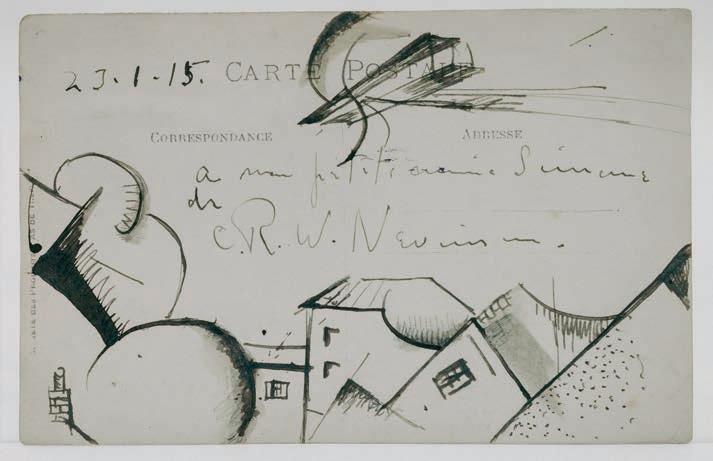 23.1.15. CARTE POSTALE
CORRESPONDANCE ADRESSE
a mon petite amie Simone
de
C.R.W. Nevinson.